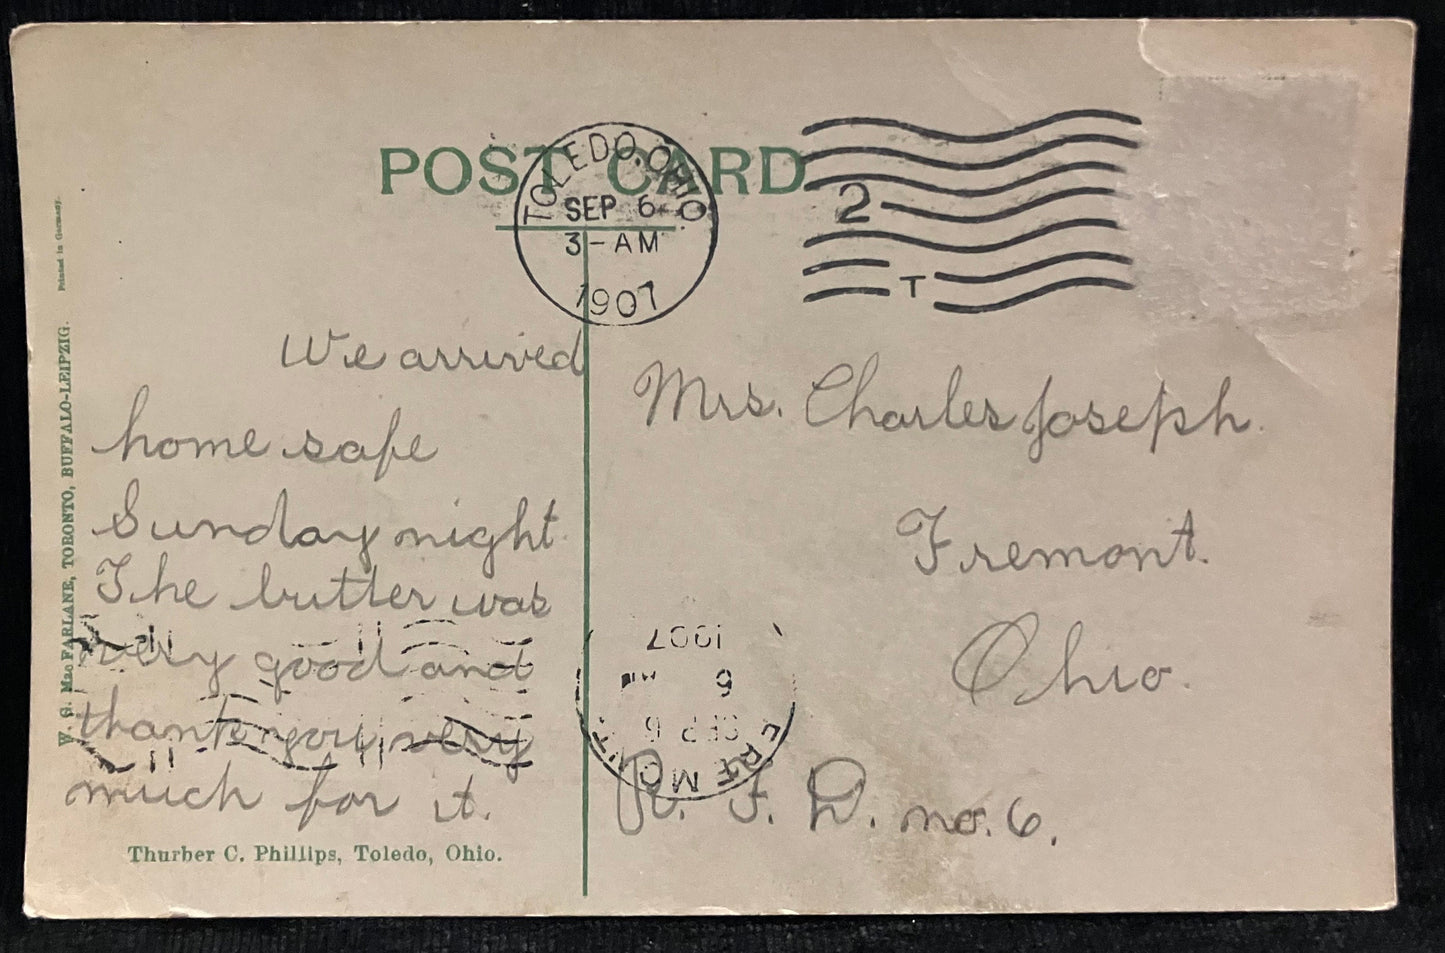 POST CARD
TOLEDO, OHIO
SEP 6
3-AM
1907
2
T
We arrived
home safe
Sunday night
The butter was
very good and
thank you very
much for it.
Mrs. Charles Joseph.
Fremont.
Ohio.
R. F. D. no. 6.
FREMONT
SEP 6
6
1907
Thurber C. Phillips, Toledo, Ohio.
W. G. MacFARLANE, TORONTO, BUFFALO-LEIPZIG.
Printed in Germany.